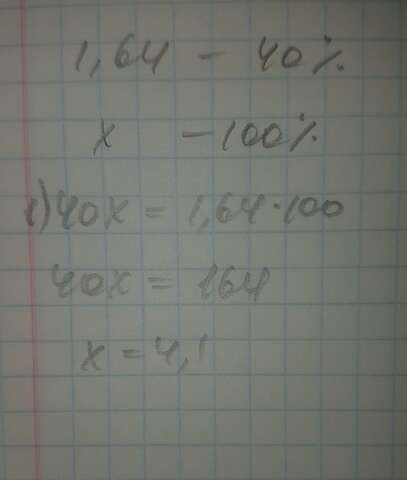 1,64 - 40%
x - 100%
1) 40x = 1,64·100
40x = 164
x = 4,1